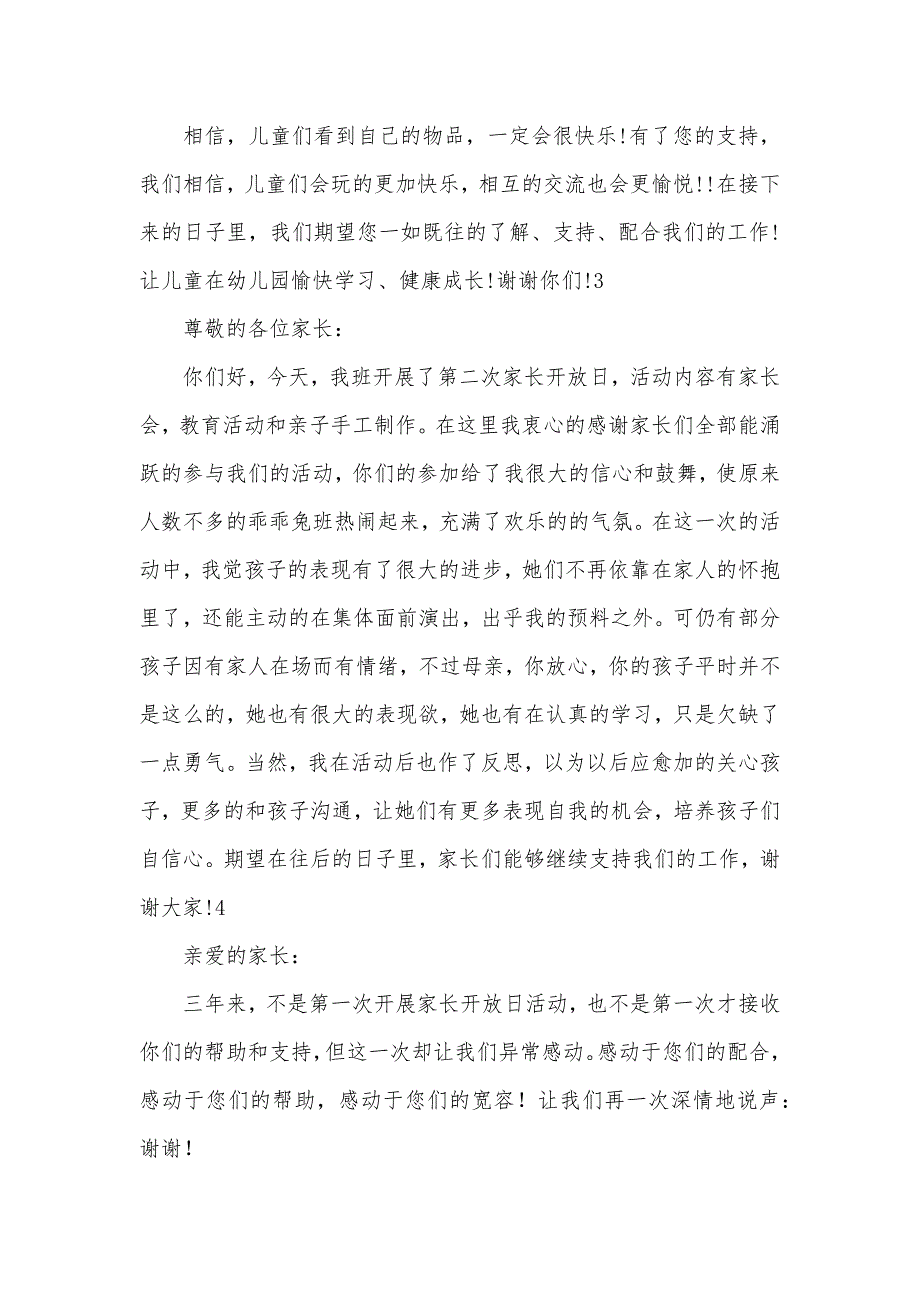 相信，儿童们看到自己的物品，一定会很快乐!有了您的支持，
我们相信，儿童们会玩的更加快乐，相互的交流也会更愉悦!!在接下
来的日子里，我们期望您一如既往的了解、支持、配合我们的工作!
让儿童在幼儿园愉快学习、健康成长!谢谢你们!3
尊敬的各位家长：
你们好，今天，我班开展了第二次家长开放日，活动内容有家长
会，教育活动和亲子手工制作。在这里我衷心的感谢家长们全部能涌
跃的参与我们的活动，你们的参加给了我很大的信心和鼓舞，使原来
人数不多的乖乖兔班热闹起来，充满了欢乐的的气氛。在这一次的活
动中，我觉孩子的表现有了很大的进步，她们不再依靠在家人的怀抱
里了，还能主动的在集体面前演出，出乎我的预料之外。可仍有部分
孩子因有家人在场而有情绪，不过母亲，你放心，你的孩子平时并不
是这么的，她也有很大的表现欲，她也有在认真的学习，只是欠缺了
一点勇气。当然，我在活动后也作了反思，以为以后应愈加的关心孩
子，更多的和孩子沟通，让她们有更多表现自我的机会，培养孩子们
自信心。期望在往后的日子里，家长们能够继续支持我们的工作，谢
谢大家!4
亲爱的家长：
三年来，不是第一次开展家长开放日活动，也不是第一次才接收
你们的帮助和支持，但这一次却让我们异常感动。感动于您们的配合，
感动于您们的帮助，感动于您们的宽容！让我们再一次深情地说声：
谢谢！